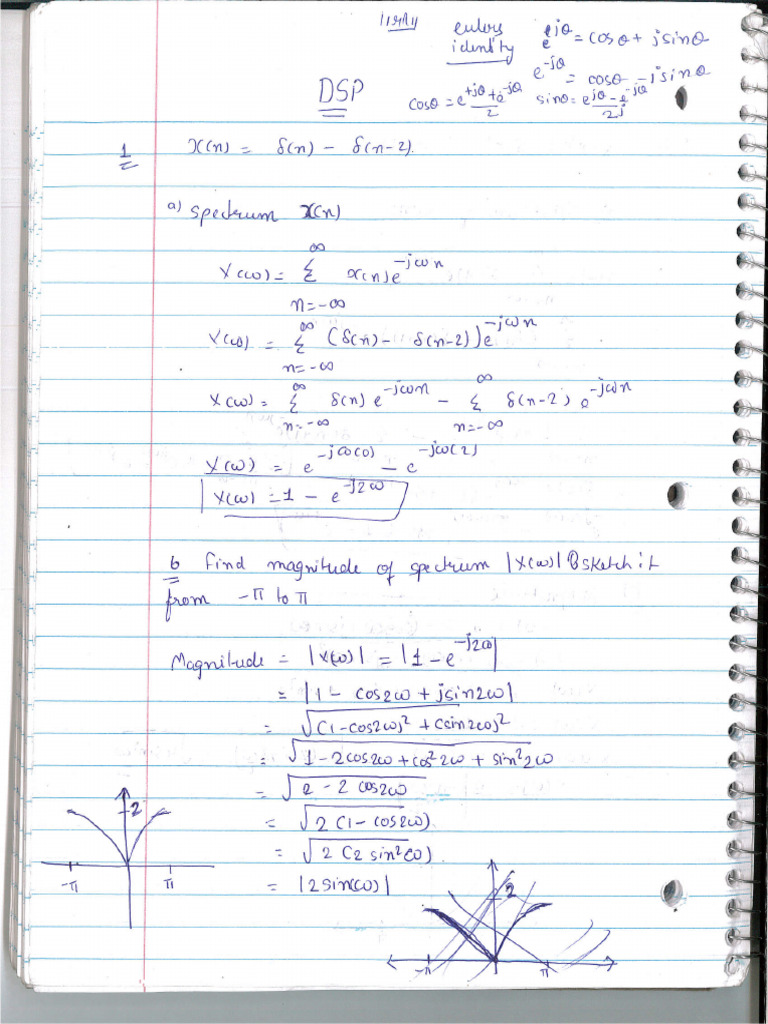 eulers identity e^{jθ} = cosθ + jsinθ
e^{-jθ} = cosθ - jsinθ
DSP
cosθ = e^{+jθ} + e^{-jθ} / 2 sinθ = e^{jθ} - e^{-jθ} / 2j
1 x(n) = δ(n) - δ(n-2).
a) spectrum X(n)
X(ω) = Σ_{n=-∞}^{∞} x(n) e^{-jωn}
X(ω) = Σ_{n=-∞}^{∞} (δ(n) - δ(n-2)) e^{-jωn}
X(ω) = Σ_{n=-∞}^{∞} δ(n) e^{-jωn} - Σ_{n=-∞}^{∞} δ(n-2) e^{-jωn}
X(ω) = e^{-jω(0)} - e^{-jω(2)}
X(ω) = 1 - e^{-j2ω}
b Find magnitude of spectrum |X(ω)| & sketch it
from -π to π
Magnitude = |X(ω)| = |1 - e^{-j2ω}|
= |1 - cos2ω + jsin2ω|
= √(1-cos2ω)² + (sin2ω)²
= √1 - 2cos2ω + cos²2ω + sin²2ω
= √2 - 2 cos2ω
= √2 (1 - cos2ω)
= √2 (2 sin²ω)
= |2sin(ω)|
2
-π π
2
-π π